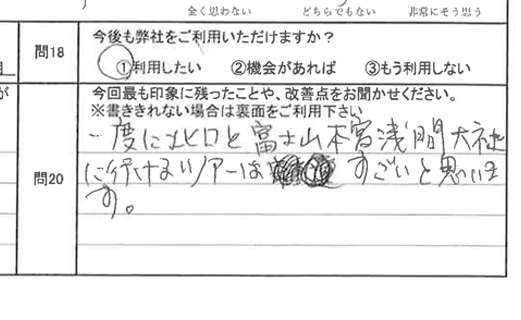 全く思わない どちらでもない 非常にそう思う
問18
今後も弊社をご利用いただけますか？
①利用したい ②機会があれば ③もう利用しない
が
問20
今回最も印象に残ったことや、改善点をお聞かせください。
※書ききれない場合は裏面をご利用下さい
一度に北口と富士山本宮浅間大社
に行けるツアーは すごいと思いま
す。